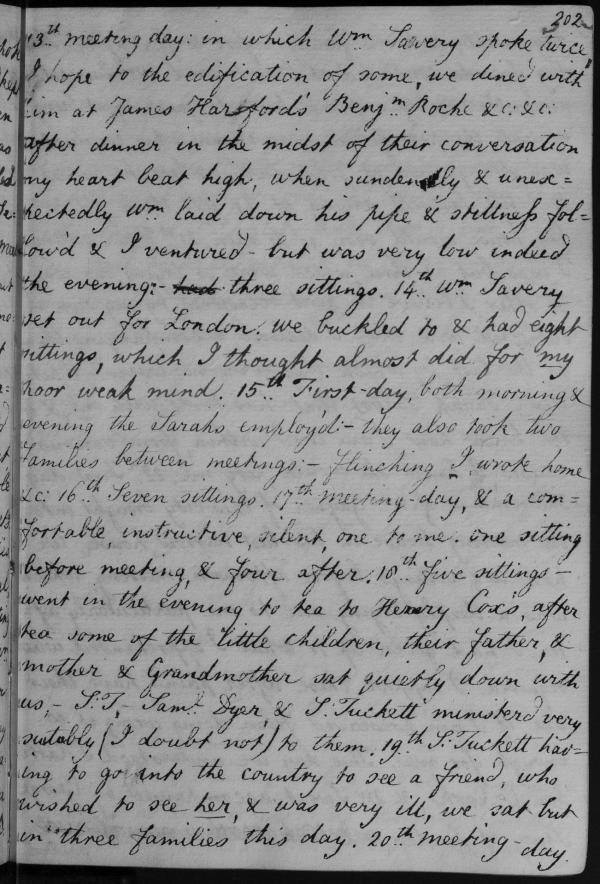 202
13th meeting day: in which Wm Savery spoke twice,
I hope to the edification of some, we dined with
him at James Harford's Benjm Roche &c: &c:
after dinner in the midst of their conversation
my heart beat high, when sundenly & unex=
pectedly Wm laid down his pipe & stillness fol=
low'd & I ventured - but was very low indeed
the evening:- had three sittings. 14th Wm Savery
set out for London. we buckled to & had eight
sittings, which I thought almost did for my
poor weak mind. 15th First-day, both morning &
evening the Sarahs employ'd:- they also took two
families between meetings:- flinching I wrote home
&c: 16th Seven sittings. 17th meeting-day, & a com=
fortable, instructive, silent, one to me. one sitting
before meeting, & four after. 18th five sittings -
went in the evening to tea to Henry Cox's, after
tea some of the little children, their father, &
mother & Grandmother sat quietly down with
us,- S:T,- Saml Dyer, & S: Tuckett minister'd very
suitably (I doubt not) to them. 19th S: Tuckett hav=
ing to go into the country to see a friend, who
wished to see her, & was very ill, we sat but
in three families this day. 20th meeting-day